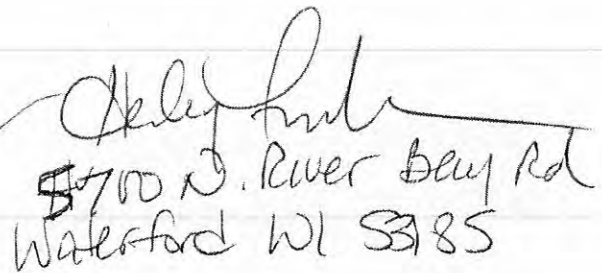 5700 N. River Bay Rd
Waterford WI 53185